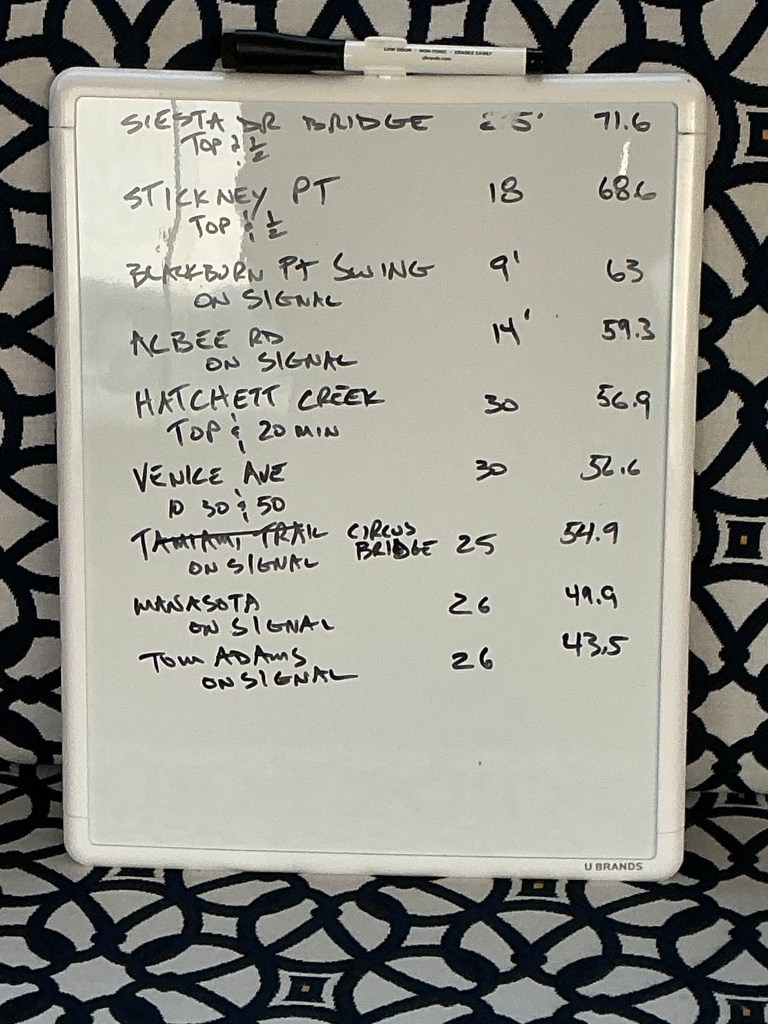 LOW ODOR • NON-TOXIC • ERASES EASILY
ubrands.com
SIESTA DR BRIDGE 25' 71.6
TOP & 1/2
STICKNEY PT 18 68.6
TOP & 1/2
BLACKBURN PT SWING 9' 63
ON SIGNAL
ALBEE RD 14' 59.3
ON SIGNAL
HATCHETT CREEK 30 56.9
TOP & 20 MIN
VENICE AVE 30 56.6
10 30 & 50
TAMIAMI TRAIL CIRCUS BRIDGE 25 54.9
ON SIGNAL
MANASOTA 26 49.9
ON SIGNAL
TOM ADAMS 26 43.5
ON SIGNAL
U BRANDS